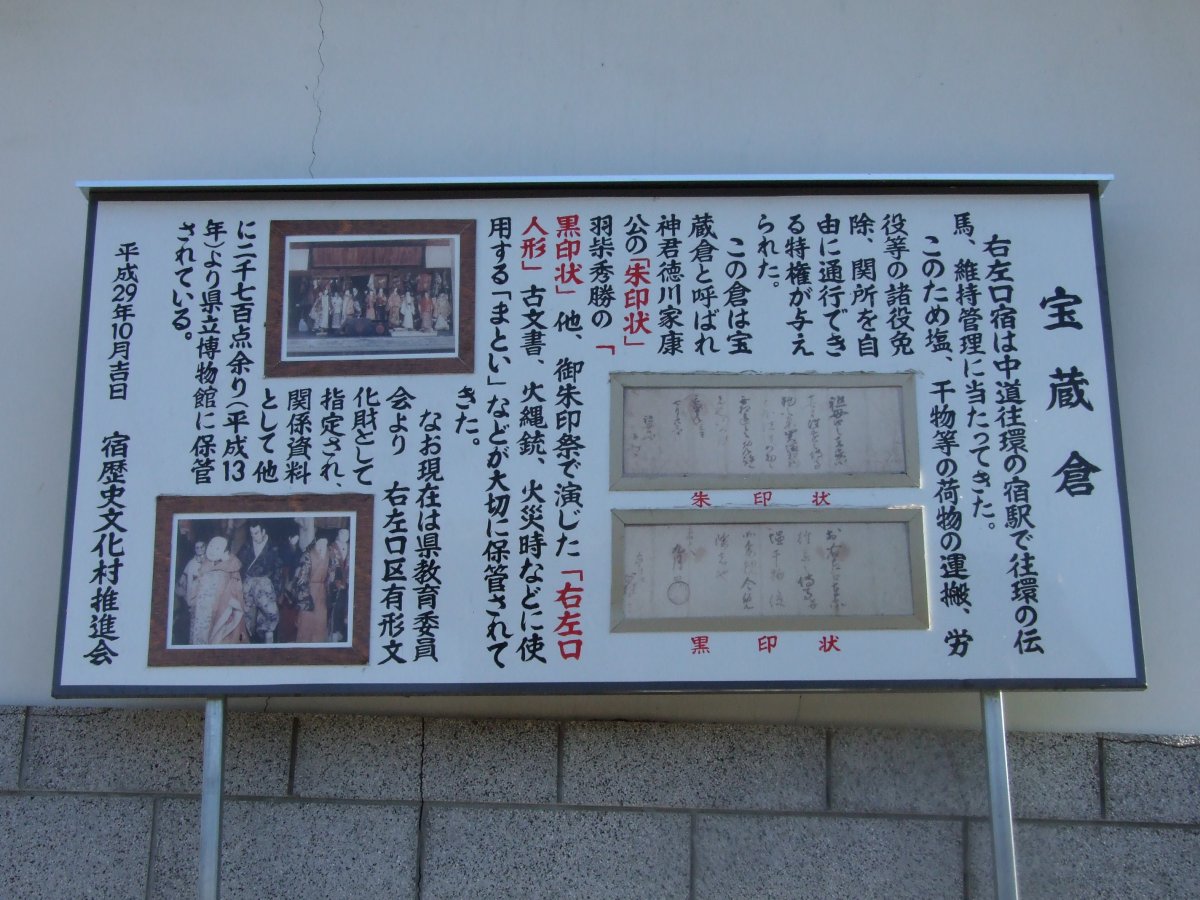 宝蔵倉
右左口宿は中道往環の宿駅で往環の伝
馬、維持管理に当たってきた。
このため塩、干物等の荷物の運搬、労
役等の諸役免
除、関所を自
由に通行でき
る特権が与え
られた。
この倉は宝
蔵倉と呼ばれ
神君徳川家康
公の「朱印状」
羽柴秀勝の「
黒印状」他、御朱印祭で演じた「右左口
人形」古文書、火縄銃、火災時などに使
用する「まとい」などが大切に保管されて
きた。
なお現在は県教育委員
会より 右左口区有形文
化財として
指定され、
関係資料
として他
に二千七百点余り(平成13
年)より県立博物館に保管
されている。
平成29年10月吉日 宿歴史文化村推進会
朱印状
黒印状